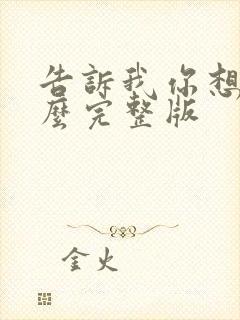 告訴我 你想
麼完整版
金火